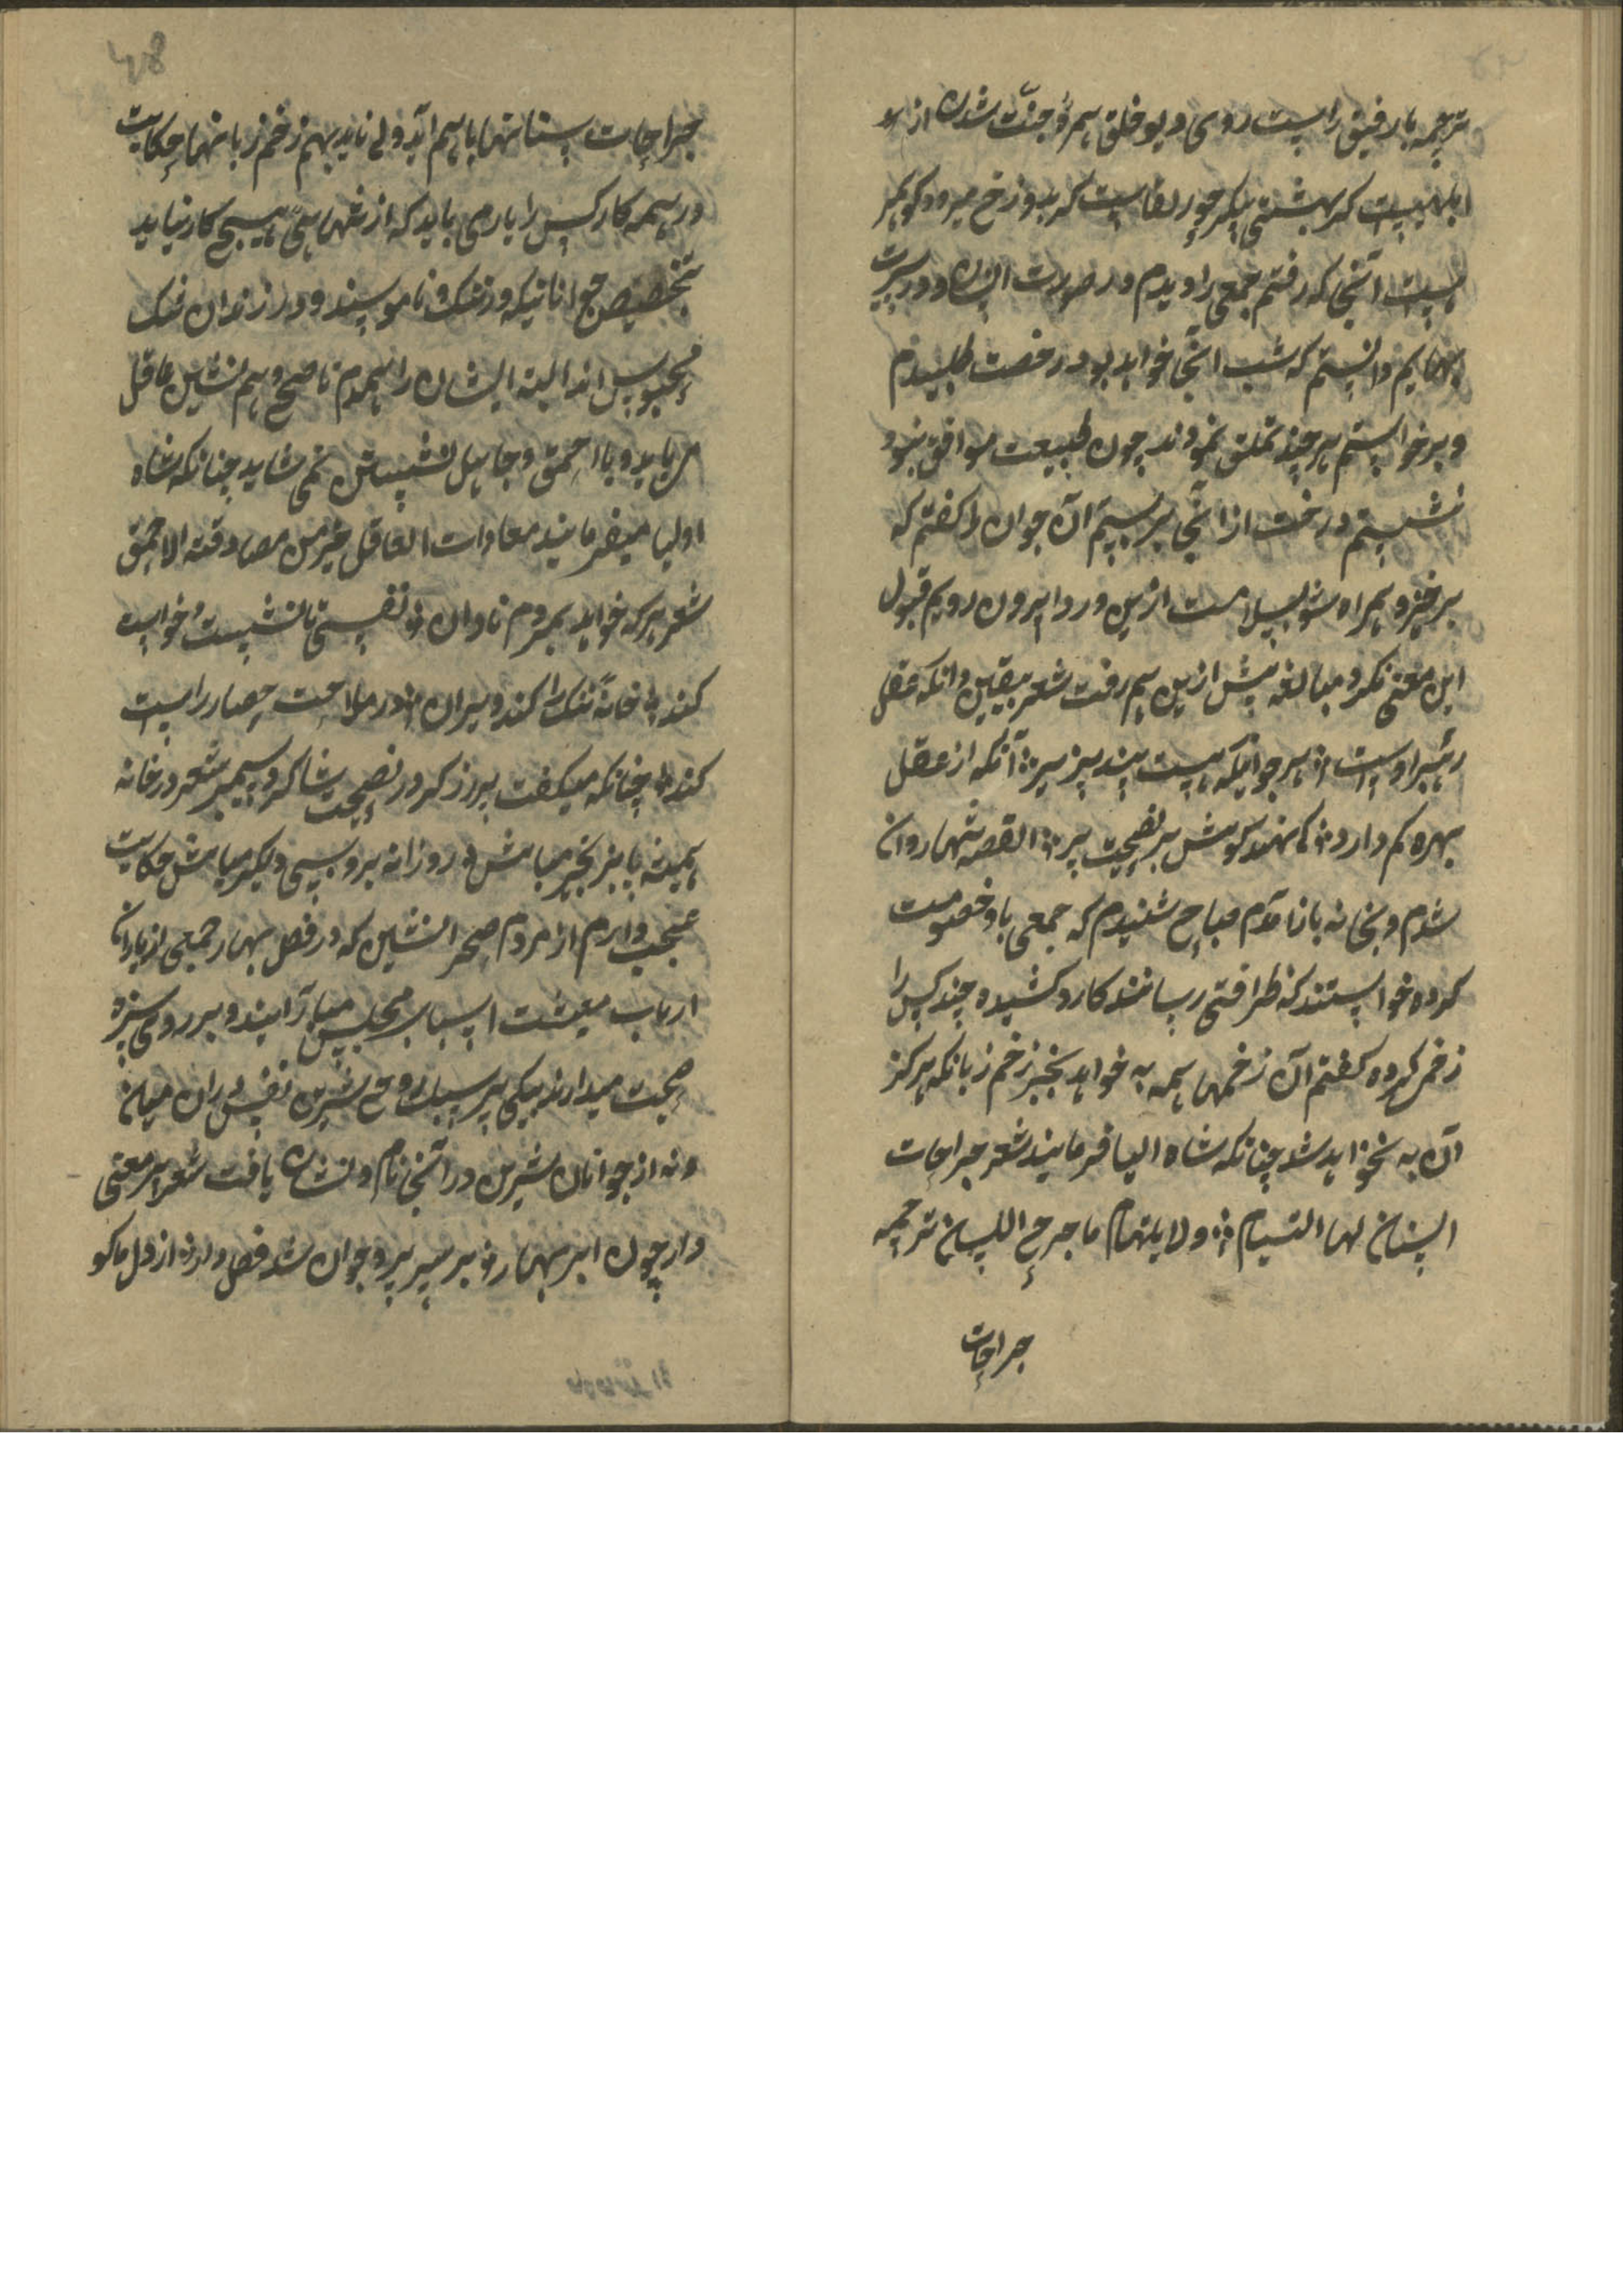 ترجمه با رفیق راست روی دیو خلق همره جنت شدن از
ابلهیست که بهشتی پیکر حور لقاست که بدوزخ میرود کو کمر
بست آنجا که رفتم جمعی را دیدم در صورت انسان و در سیرت
بهایم دانستم که شب آنجا خواهد بود رخصت طلبیدم
و برخواستم هر چند تملق نمودند چون طبیعت موافق نبود
نشستم و رخت از آنجا بر بستم آن جوان را گفتم که
برخیز و همراه شو بسلامت ازین ورد ابیرون رویم قبول
این معنی نکرد مبالغه پیش ازین هم رفت شعر بیقین دانکه عقل
رهبر اوست هر جوانیکه هست پند پذیر آنکه از عقل
بهره کم دارد کی نهد گوش بر نصیحت پیر القصه تنها روان
شدم و بخانه باز آمدم صباح شنیدم که جمعی با و خصومت
کرده خواستند که ظرافتی رسانند کارد کشیده چند کس را
زخمی کرده گفتم آن زخمها همه به خواهد بخیر زخم زبانکه هرگز
آن به نخواهد شد چنانکه شاه اولیا فرمایند شعر جراحات
السنان لها التیام ولا یلتام ما جرح اللسان ترجمه
جراحات
جراحات سنانها با هم آید ولی ناید بهم زخم زبانها حکایت
در همه کار کس را یاری باید که از تنهایی هیچ کار نیاید
بتخصیص جوانانیکه در ننگ و ناموسند و در زندان ننگ
محبوس اند البته ایشان را همدم ناصح و هم نشین عاقل
می باید و با احمق و جاهل نشستن نمی شاید چنانکه شاه
اولیا میفرمایند معادات العاقل خیر من مصادقته الاحمق
شعر هر که خواهد بمردم نادان نفسی با نشست و خواست
کند خانه ننگ را کند ویران در ملامت حصار راست
کند چنانکه میگفت پیرزگر در نصیحت شاگرد سیمبر شعر در خانه
همینه پابزنجیر مباش روزانه بروسی دیگر مباش حکایت
عجب دارم از مردم صحرا نشین که در فصل بهار جمعی از یاران
ارباب معیشت اسباب مجلس میآرایند و بر روی سبزه
صحبت میدارند یکی پیر سبک روح شیرین نفس در ان میان
و نه از جوانان شیرین در آنجا نام و نشان یافت شعر هر معنی
دار چون ابر بهار بر سر پیر و جوان شد فصل دار از دل ما کو